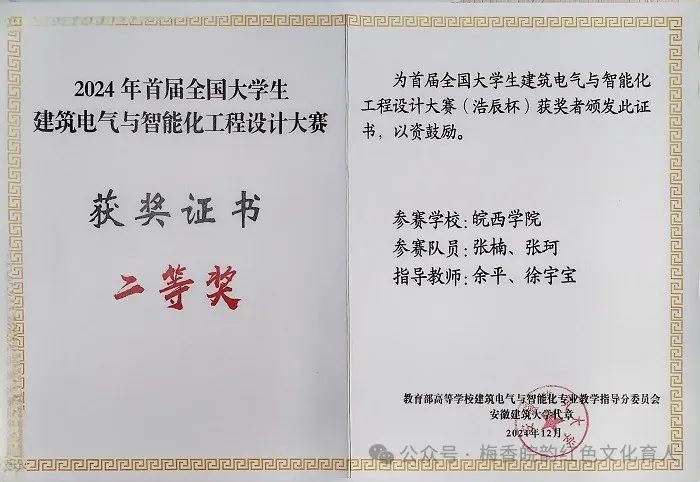 2024 年首届全国大学生
建筑电气与智能化工程设计大赛
获奖证书
二等奖
为首届全国大学生建筑电气与智能化
工程设计大赛（浩辰杯）获奖者颁发此证
书，以资鼓励。
参赛学校：皖西学院
参赛队员：张楠、张珂
指导教师：余平、徐宇宝
教育部高等学校建筑电气与智能化专业教学指导分委员会
安徽建筑大学代章
2024年12月
公众号·梅香皖韵红色文化育人